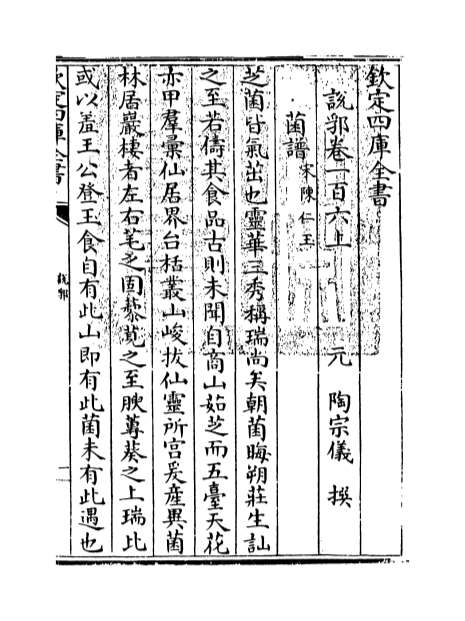 欽定四庫全書
說郛卷一百六上
元 陶宗儀 撰
菌譜 宋陳仁玉
芝菌皆氣茁也靈華三秀稱瑞尚矣朝菌晦朔莊生訕
之至若儔其食品古則未聞自商山茹芝而五臺天花
亦甲羣彙仙居界台括叢山峻拔仙靈所宮爰産異菌
林居巖棲者左右芼之固藜莧之至腴蓴葵之上瑞比
或以羞王公登玉食自有此山即有此菌未有此遇也
欽定四庫全書
說郛
一